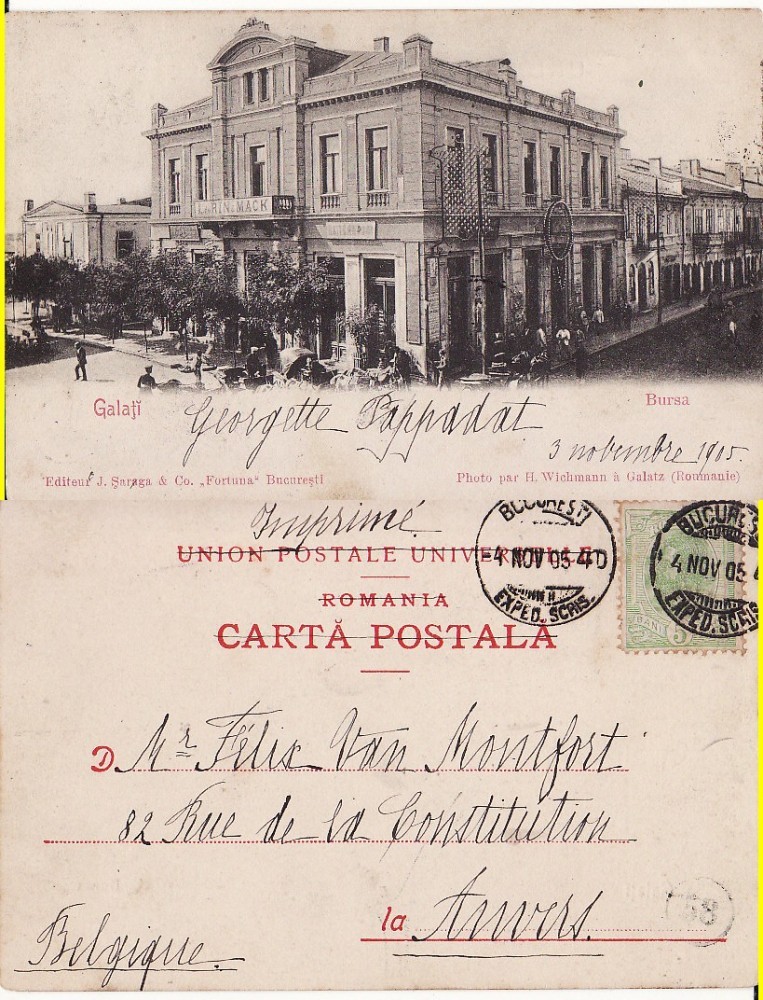 MACK
Galaţĭ
Bursa
Georgette Pappadat
3 nobembre 1905.
Editeur J. Şaraga & Co. „Fortuna“ Bucureşti
Photo par H. Wichmann à Galatz (Roumanie)
Imprimé
UNION POSTALE UNIVERSELLE
ROMANIA
CARTĂ POSTALA
BUCUREŞTI
4 NOV 05 4D
EXPED. SCRIS.
BUCUREŞ
4 NOV 05 4
EXPED. SCRIS
BANI 5
D Mr. Félix Van Montfort
82 Rue de la Constitution
la Anvers.
Belgique.
68